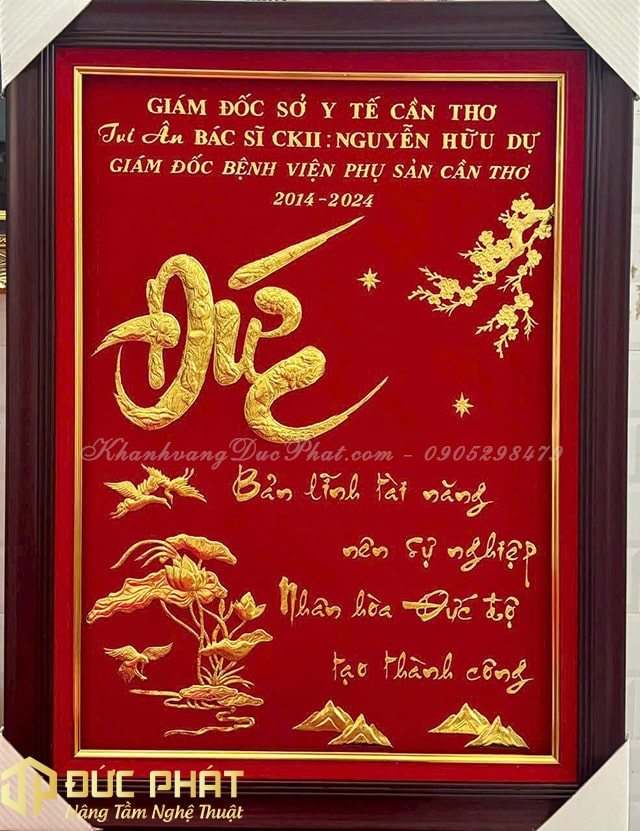 GIÁM ĐỐC SỞ Y TẾ CẦN THƠ
Tri Ân BÁC SĨ CKII : NGUYỄN HỮU DỰ
GIÁM ĐỐC BỆNH VIỆN PHỤ SẢN CẦN THƠ
2014-2024
Đức
KhanhvangDucPhat.com - 0905298479
Bản lĩnh tài năng
nên sự nghiệp
Nhân hòa Đức độ
tạo thành công
ĐỨC PHÁT
Nâng Tầm Nghệ Thuật